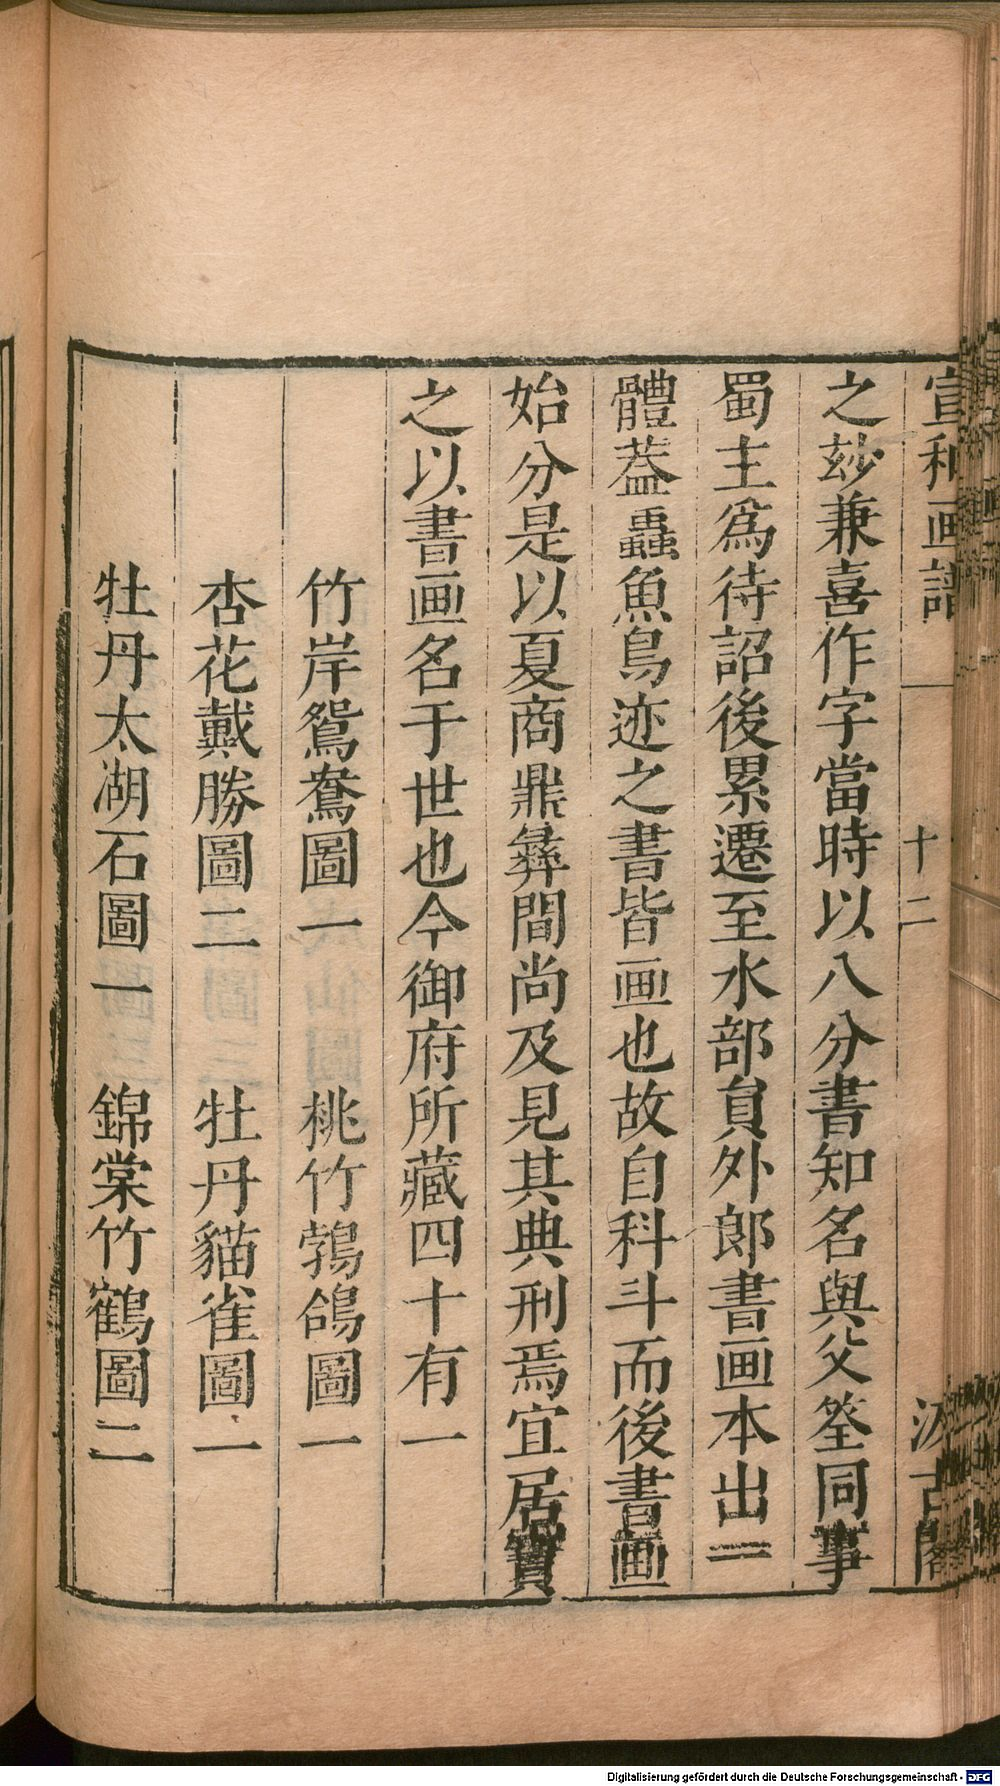 宣和画譜 十二 汲古閣
之玅兼喜作字當時以八分書知名與父筌同事
蜀主爲待詔後累遷至水部員外郎書画本出一
體葢蟲魚鳥迹之書皆画也故自科斗而後書画
始分是以夏商鼎彝間尚及見其典刑焉宜居寶
之以書画名于世也今御府所藏四十有一
竹岸鴛鴦圖一 桃竹鵓鴿圖一
杏花戴勝圖二 牡丹貓雀圖一
牡丹太湖石圖一 錦棠竹鶴圖二
Digitalisierung gefördert durch die Deutsche Forschungsgemeinschaft - DFG